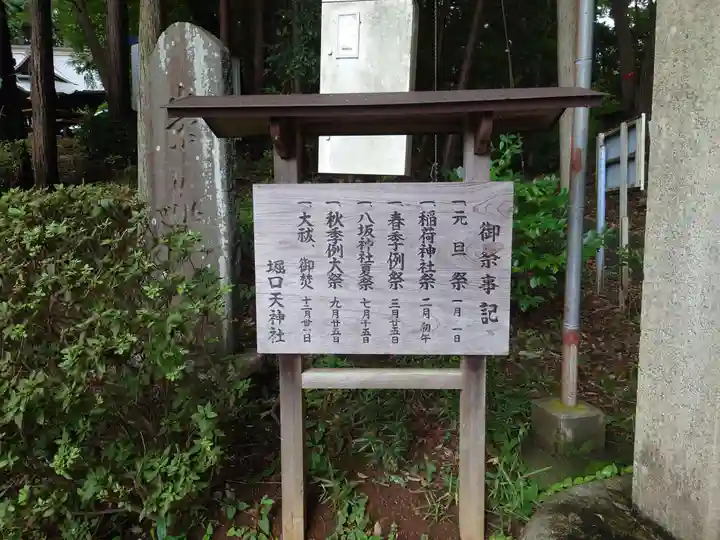 御祭事記
一元旦祭 一月一日
一稲荷神社祭 二月初午
一春季例祭 三月廿五日
一八坂神社夏祭 七月十五日
一秋季例大祭 九月廿五日
一大祓、御焚 十二月廿八日
堀口天神社